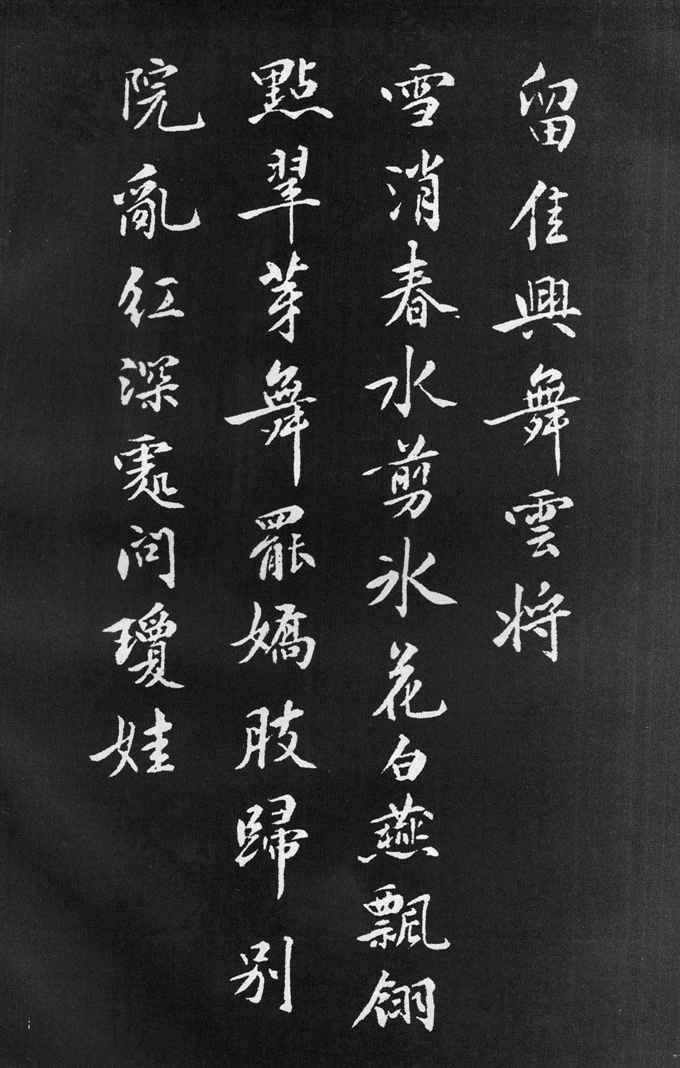 留佳興舞雲将
雪消春水剪氷花白燕飄翎
點翠芽舞罷嬌肢歸別
院亂紅深處問瓊娃